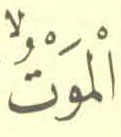 الْمَوْتُ ۙ